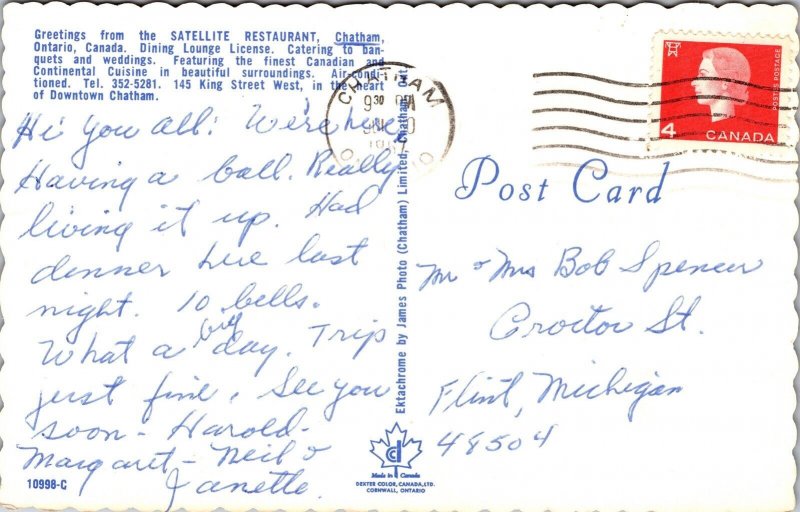 Greetings from the SATELLITE RESTAURANT, Chatham,
Ontario, Canada. Dining Lounge License. Catering to ban-
quets and weddings. Featuring the finest Canadian and
Continental Cuisine in beautiful surroundings. Air-condi-
tioned. Tel. 352-5281. 145 King Street West, in the heart
of Downtown Chatham.
Hi you all: We're here
Having a ball. Really
living it up. Had
dinner here last
night. 10 bells.
What a big day. Trip
just fine. See you
soon - Harold -
Margaret - Neil &
Janette.
10998-C
Ektachrome by James Photo (Chatham) Limited, Chatham, Ont.
Made in Canada
DEXTER COLOR, CANADA, LTD.
CORNWALL, ONTARIO
CHATHAM
9 30 PM
POSTES POSTAGE
4 CANADA
Post Card
Mr & Mrs Bob Spencer
Crocton St.
Flint, Michigan
48504